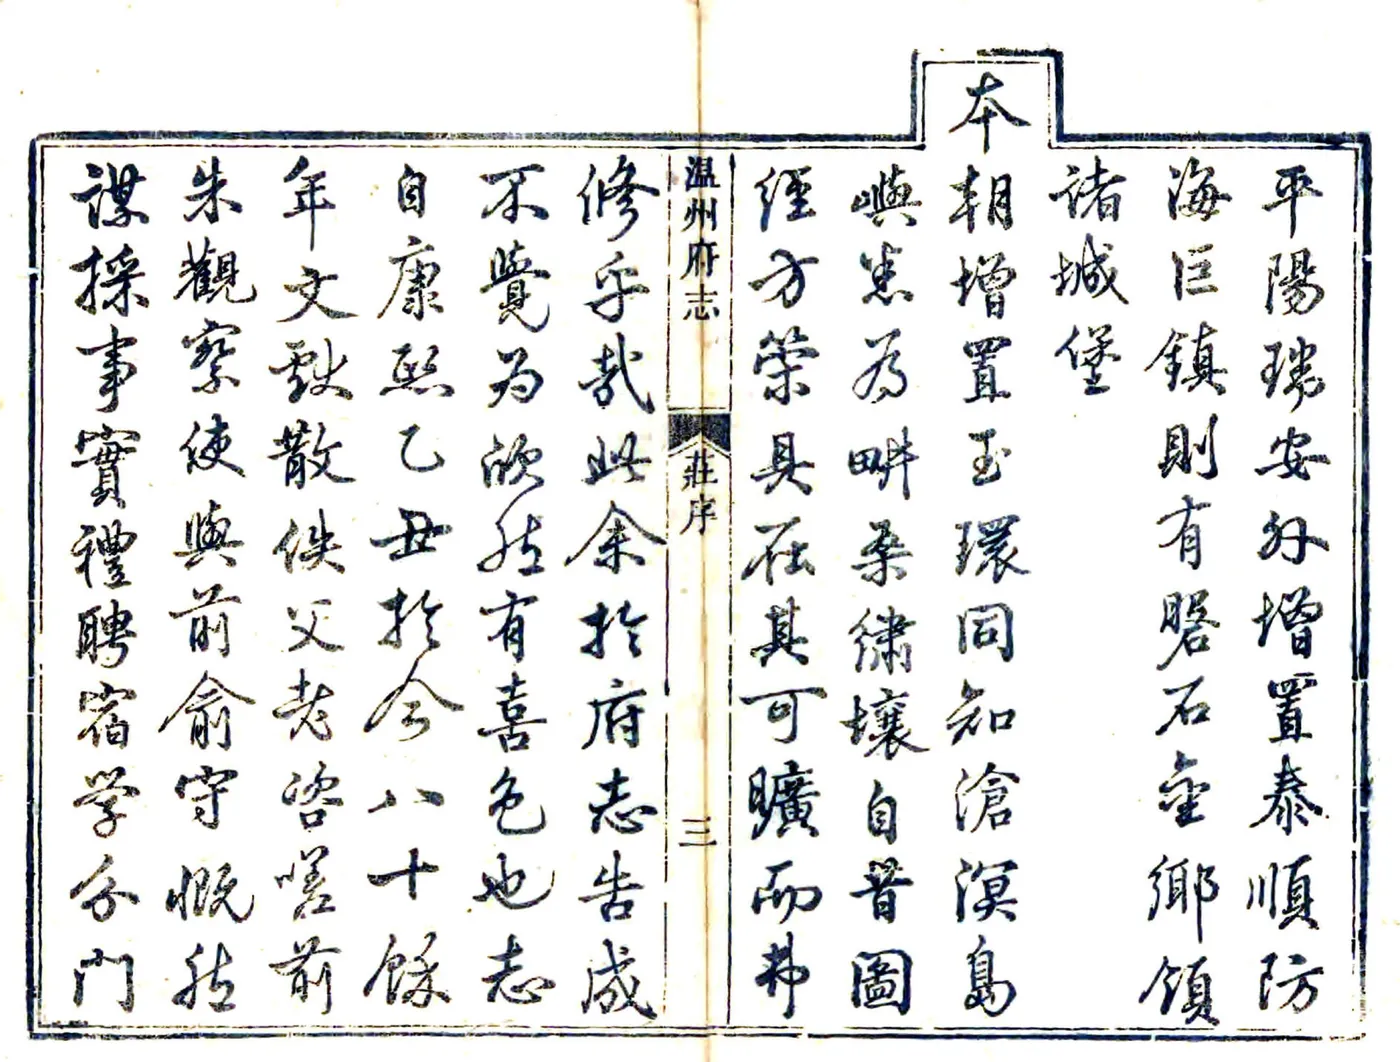 平陽瑞安外增置泰順防
海巨鎮則有磐石金鄉領
諸城堡
本朝增置玉環同知滄溟島
嶼悉為畊桑繡壤自昔圖
經方策具在其可曠而弗
温州府志
莊序
三
修乎哉此余於府志告成
不覺為欣然有喜色也志
自康熙乙丑於今八十餘
年文獻散佚父老咨嗟前
朱觀察使與前俞守慨然
謀採事實禮聘宿学分門